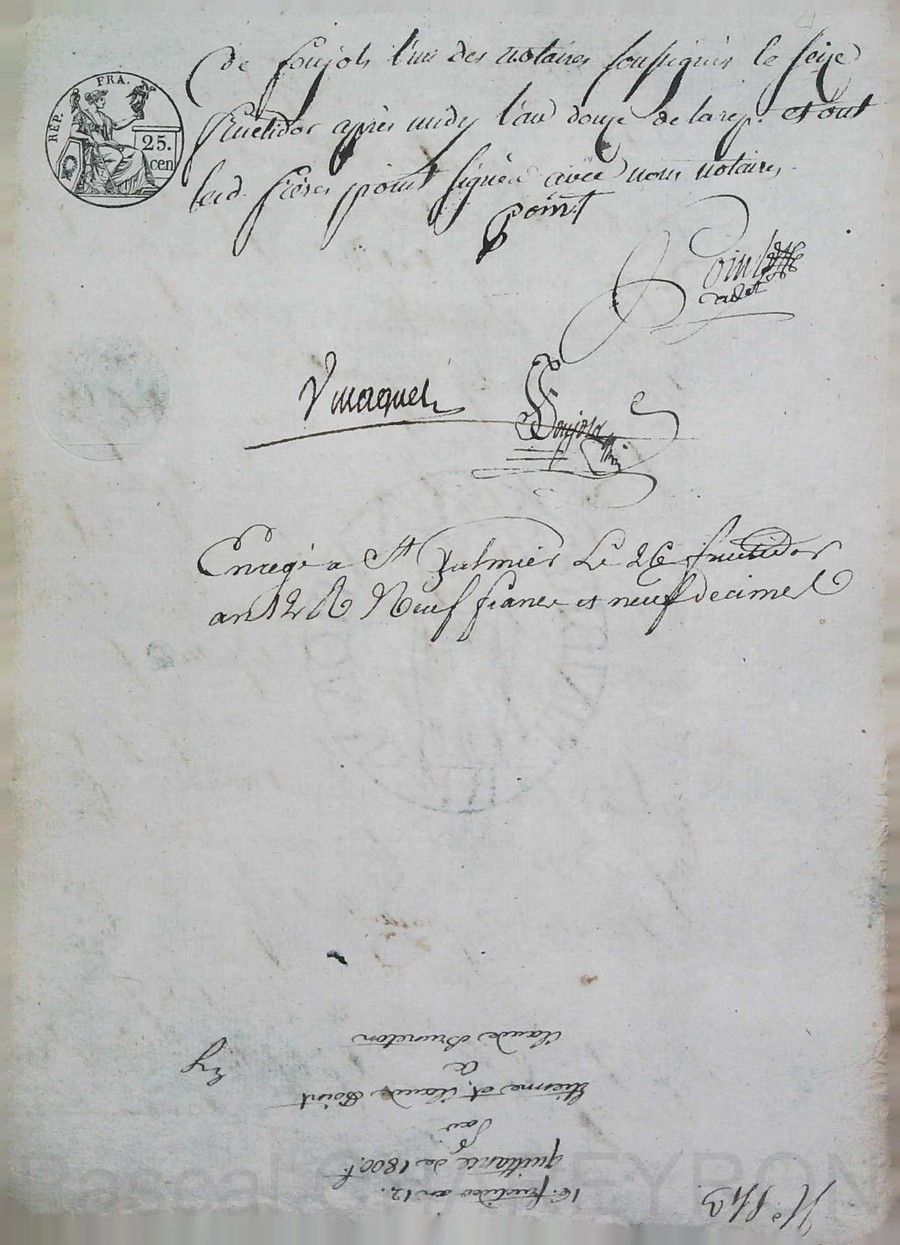 RÉP. FRA.
25.
cen
de Soujols l'un des notaires soussignés le seize
fructidor après midy l'an douze de la rep. et ont
lesd. frères point signéz avéc nous notaires
point
Point
cadet
Vmaquet
Soujols
Enregé a St Galmier Le 26 fructidor
an 12 R Neuf francs et neuf decimes
16. fructidor an 12.
quittance de 1800.f
par
étienne et claude Point
a
claude Bruneton
N°